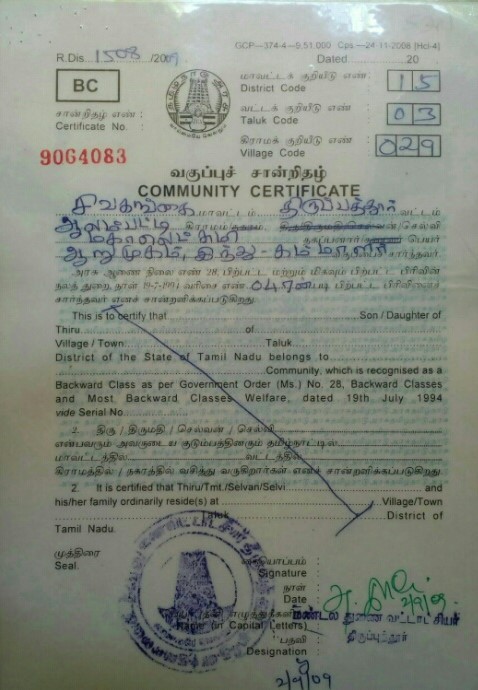 GCP—374-4—9,51,000 Cps—24-11-2008 [Hcl-4]
R.Dis. 1508 /2009 Dated 20
BC
மாவட்டக் குறியீடு எண் :
District Code 15
வட்டக் குறியீடு எண் :
Taluk Code 03
கிராமக் குறியீடு எண் :
Village Code 029
சான்றிதழ் எண் :
Certificate No.
9064083
வகுப்புச் சான்றிதழ்
COMMUNITY CERTIFICATE
சிவகங்கை மாவட்டம் திருப்பத்தூர் வட்டம்
கிராமம் செல்வி
தகப்பனார் பெயர்
ஆறுமுகம், இந்து - சார்ந்தவர்
அரசு ஆணை நிலை எண் 28, பிற்பட்ட மற்றும் மிகவும் பிற்பட்ட பிரிவின்
நலத் துறை, நாள் 19-7-1994 வரிசை எண் 047ன்படி பிற்பட்ட பிரிவினைச்
சார்ந்தவர் எனச் சான்றளிக்கப்படுகிறது.
This is to certify that Son / Daughter of
Thiru of
Village / Town Taluk
District of the State of Tamil Nadu belongs to
Community, which is recognised as a
Backward Class as per Government Order (Ms.) No. 28, Backward Classes
and Most Backward Classes Welfare, dated 19th July 1994
vide Serial No.
2. திரு / திருமதி / செல்வன் / செல்வி
என்பவரும் அவருடைய குடும்பத்தினரும் தமிழ்நாட்டில்
மாவட்டத்தில் வட்டத்தில்
கிராமத்தில் / நகரத்தில் வசித்து வருகிறார்கள் எனச் சான்றளிக்கப்படுகிறது.
2. It is certified that Thiru/Tmt./Selvan/Selvi and
his/her family ordinarily reside(s) at Village/Town
Taluk District of
Tamil Nadu.
முத்திரை
Seal.
கையொப்பம் :
Signature
நாள் :
Date 2/9/09
Name (in Capital Letters)
மண்டல துணை வட்டாட்சியர்
திருப்புத்தூர்
பதவி :
Designation
2/9/09